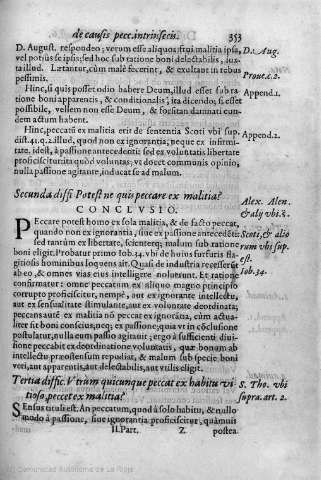 de causis pecc. intrinsecis. 353
D. August. respondeo; verum esse aliquos frui malitia ipsa, D. Aug.
vel potius se ipsis; sed hoc sub ratione boni delectabilis, iux-
ta illud. Lætantur, cum malè fecerint, & exultant in rebus
pessimis. Proue. c. 2.
Hinc, si quis posset odio habere Deum, illud esset sub ra Append. 1.
tione boni apparentis, & conditionalis, ita dicendo; si esset
possibile, vellem non esse Deum, & forsitan damnati eun-
dem actum habent.
Hinc, peccati ex malitia erit de sententia Scoti vbi sup Append. 2.
dist. 41. q. 2. illud, quod non ex ignorantia; neque ex infirmi-
tate, idest, à passione antecedenti sed ex voluntatis libertate
proficiscitur ita quòd voluntas; vt docet communis opinio,
nulla passione agitante, inducat se ad malum.
Secunda diffi. Potest ne quis peccare ex malitia?
CONCLVSIO. Alex. Alen.
PEccare potest homo ex sola malitia, & de facto peccat, & alij vbi. s.
quando non ex ignorantia, siue ex passione antecedēte: Scoti, & alio
sed tantùm ex libertate, scienterq; malum sub ratione rum vbi sup.
boni eligit. Probatur primo Iob. 34. vbi de huius farfuris fla- est.
gitiosis hominibus loquens ait. Quasi de industria recesserūt Iob. 34.
ab eo, & omnes vias eius intelligere noluerunt. Et ratione
confirmatur: omne peccatum ex aliquo magno principio
corrupto proficiscitur, nempè, aut ex ignorante intellectu,
aut ex sensualitate stimulante, aut ex voluntate deordinata;
peccans autē ex malitia nō peccat ex ignorātia, cùm actua-
liter sit boni conscius, neq; ex passione; quia vt in cōclusione
postulatur, nulla eum passio agitauit; ergo à sufficienti diuisi-
one peccabit ex deordinatione voluntatis, quæ bonum ab
intellectu præostensum repudiat, & malum sub specie boni
veri, aut apparentis, aut delectabilis, aut vtilis eligit.
Tertia diffic. Vtrum quicunque peccat ex habitu vi S. Tho. vbi
tioso, peccet ex malitia? supra. art. 2.
SEnsus tituli est. An peccatum, quod à solo habitu, & nullo
modo à passione, siue ignorantia proficiscitur, quamuis
II. Part. Z. postea.
Comunidad Autónoma de La Rioja